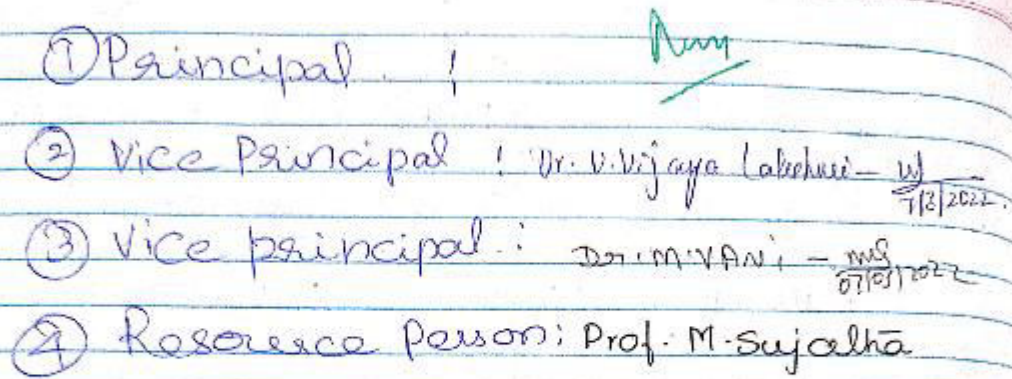 ① Principal :
② Vice Principal : Dr. V. Vijaya Lakshmi - 7/3/2022.
③ Vice principal : Dr. M. VANI - 07/03/2022
④ Resource Person : Prof. M. Sujatha